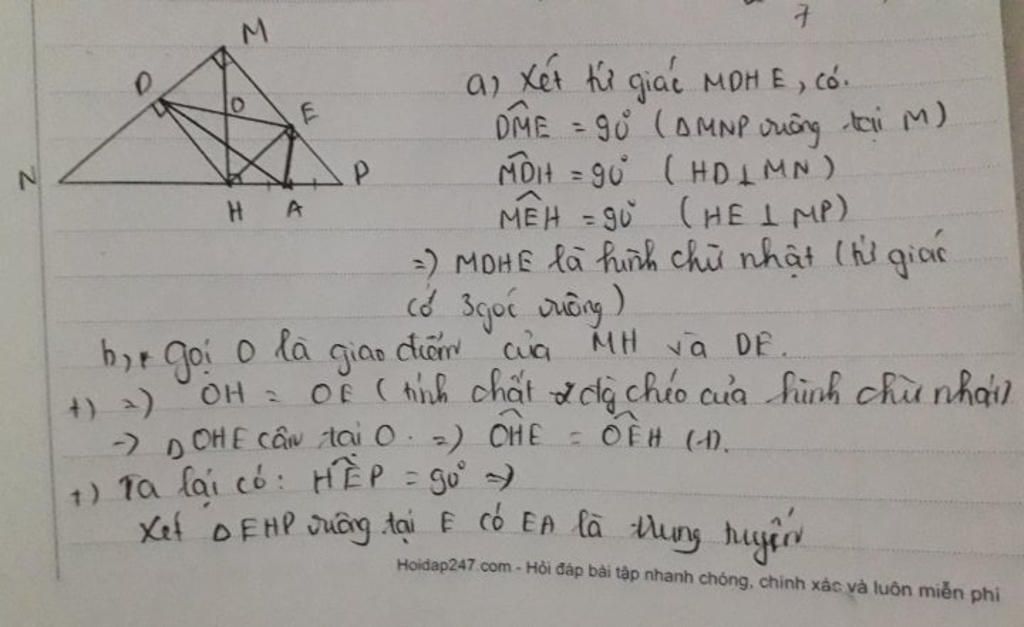 7
M
D
O
E
N
P
H
A
a) Xét tứ giác MDHE, có.
DME = 90° (ΔMNP vuông tại M)
MDH = 90° (HD⊥MN)
MEH = 90° (HE ⊥ MP)
=) MDHE là hình chữ nhật (tứ giác
có 3 góc vuông)
b, + gọi O là giao điểm của MH và DE.
+) =) OH = OE (tính chất 2 đg chéo của hình chữ nhật)
-> ΔOHE cân tại O. =) OHE = OEH (1).
+) Ta lại có: HEP = 90° =>
Xét ΔEHP vuông tại E có EA là trung tuyến
Hoidap247.com - Hỏi đáp bài tập nhanh chóng, chính xác và luôn miễn phí